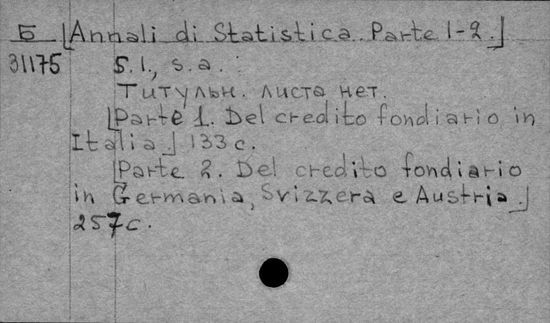 Б [Annali di Statistica. Parte 1-2.]
31175 S.l., s.a.
Титульн. листа нет.
[Parte 1. Del credito fondiario in
Italia] 133 с.
[Parte 2. Del credito fondiario
in Germania, Svizzera e Austria.]
257с.